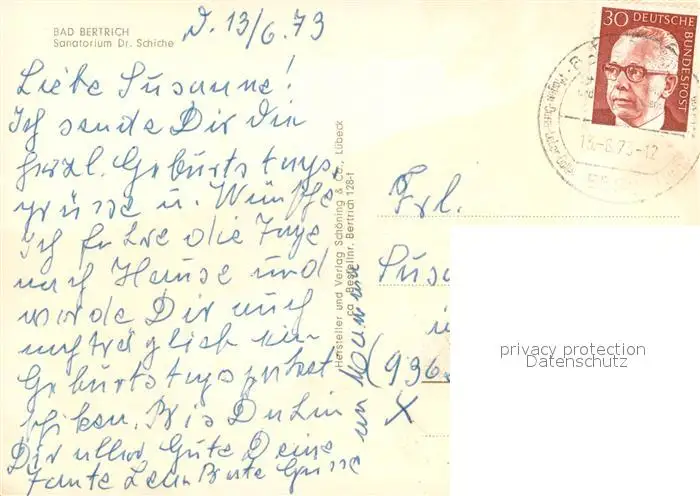 BAD BERTRICH
Sanatorium Dr. Schiche
D. 13/6.73
Liebe Susanne!
Ich sende Dir die
herzl. Geburtstags-
grüsse u. Wünsche
Ich fahre die Tage
nach Hause und
werde Dir auch
nachträglich ein
Geburtstagspaket
schiken. Bis Dahin
Dir alles Gute Deine
Tante Leni Beste Grüsse
an Mama
Hersteller und Verlag Schöning & Co., Lübeck
Bestellnr. Bertrich 128-f
30 DEUTSCHE BUNDESPOST
-6.73-12
Frl.
Sus
(936
X
privacy protection
Datenschutz